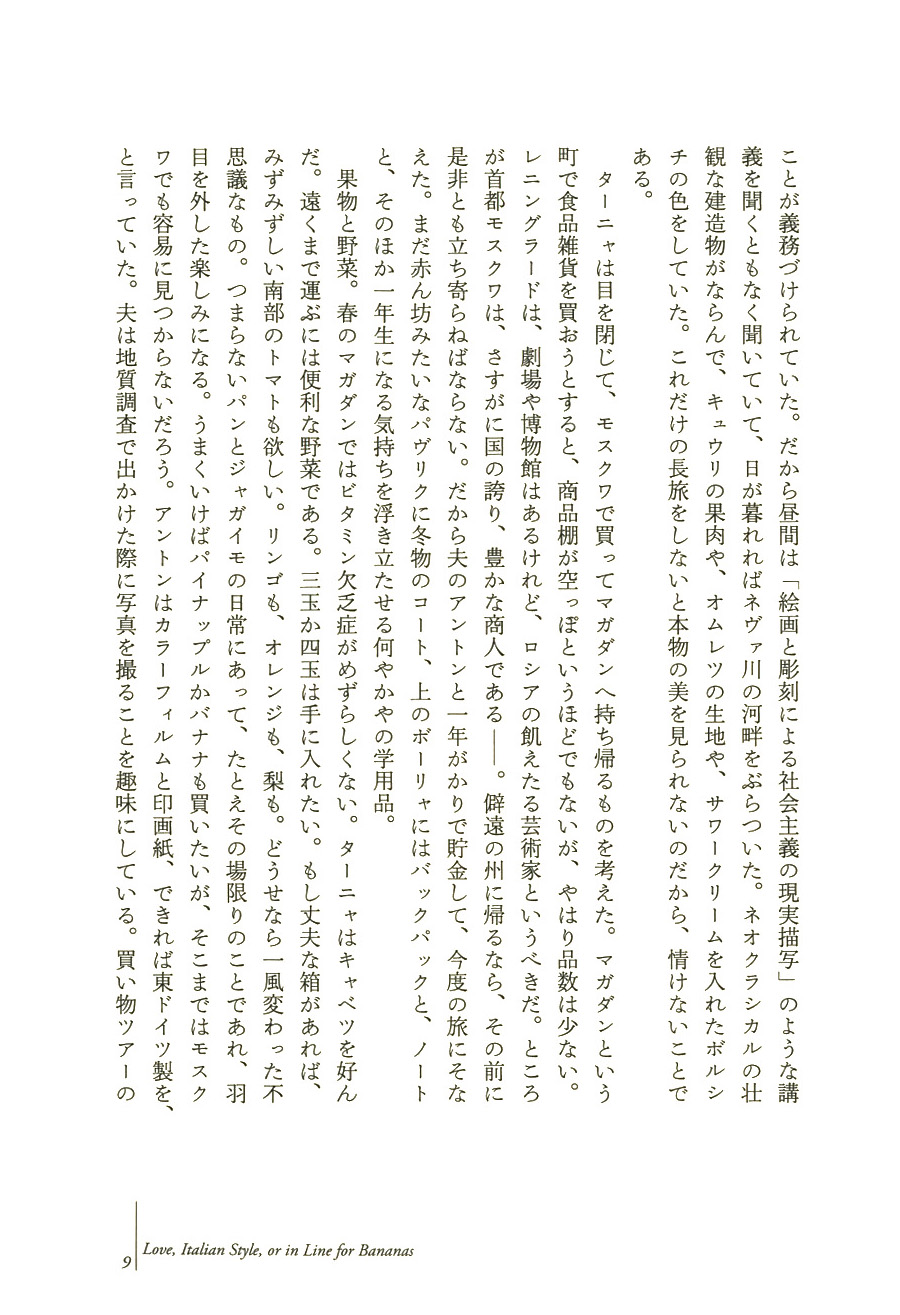 ことが義務づけられていた。だから昼間は「絵画と彫刻による社会主義の現実描写」のような講
義を聞くともなく聞いていて、日が暮れればネヴァ川の河畔をぶらついた。ネオクラシカルの壮
観な建造物がならんで、キュウリの果肉や、オムレツの生地や、サワークリームを入れたボルシ
チの色をしていた。これだけの長旅をしないと本物の美を見られないのだから、情けないことで
ある。
ターニャは目を閉じて、モスクワで買ってマガダンへ持ち帰るものを考えた。マガダンという
町で食品雑貨を買おうとすると、商品棚が空っぽというほどでもないが、やはり品数は少ない。
レニングラードは、劇場や博物館はあるけれど、ロシアの飢えたる芸術家というべきだ。ところ
が首都モスクワは、さすがに国の誇り、豊かな商人である――。僻遠の州に帰るなら、その前に
是非とも立ち寄らねばならない。だから夫のアントンと一年がかりで貯金して、今度の旅にそな
えた。まだ赤ん坊みたいなパヴリクに冬物のコート、上のボーリャにはバックパックと、ノート
と、そのほか一年生になる気持ちを浮き立たせる何やかやの学用品。
果物と野菜。春のマガダンではビタミン欠乏症がめずらしくない。ターニャはキャベツを好ん
だ。遠くまで運ぶには便利な野菜である。三玉か四玉は手に入れたい。もし丈夫な箱があれば、
みずみずしい南部のトマトも欲しい。リンゴも、オレンジも、梨も。どうせなら一風変わった不
思議なもの。つまらないパンとジャガイモの日常にあって、たとえその場限りのことであれ、羽
目を外した楽しみになる。うまくいけばパイナップルかバナナも買いたいが、そこまではモスク
ワでも容易に見つからないだろう。アントンはカラーフィルムと印画紙、できれば東ドイツ製を、
と言っていた。夫は地質調査で出かけた際に写真を撮ることを趣味にしている。買い物ツアーの
9
Love, Italian Style, or in Line for Bananas